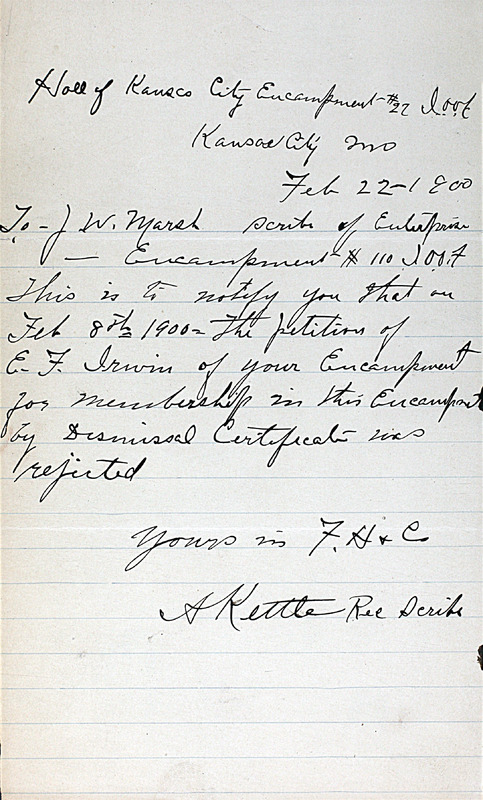 Hall of Kansas City Encampment #22 I.O.O.F
Kansas City Mo
Feb 22-1900
To - J W. Marsh scribe of Enterprise
— Encampment # 110 I.O.O.F
This is to notify you that on
Feb 8th 1900 = The petition of
E. F. Irwin of your Encampment
for membership in this Encampment
by Dismissal Certificate was
rejected
Yours in F. H & C
A Kettle Rec Scribe